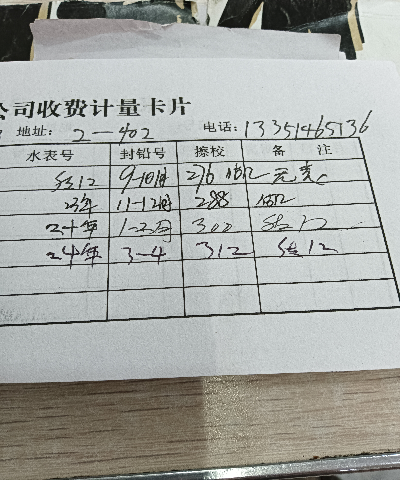 公司收费计量卡片
地址: 2-402 电话: 13351465136
水表号 封铅号 擦校 备 注
9-10月 276
23年 11-12月 288
24年 1-2月 300 12
24年 3-4 312 12